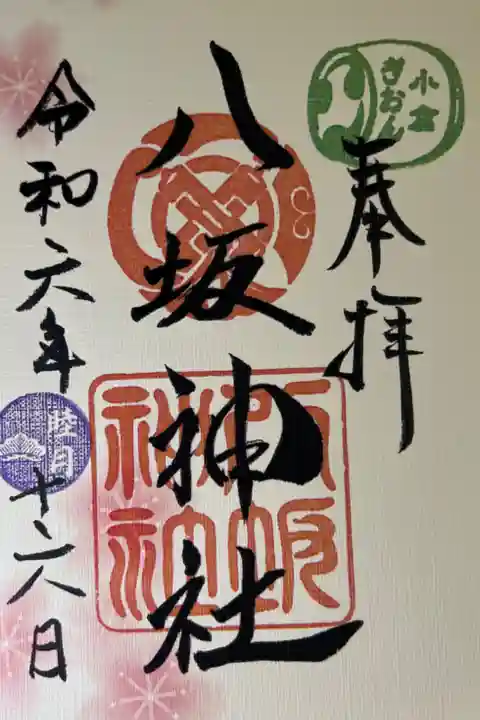 小倉
ぎおん
奉拝
八坂神社
八坂
神社
令和六年
睦月
十六日